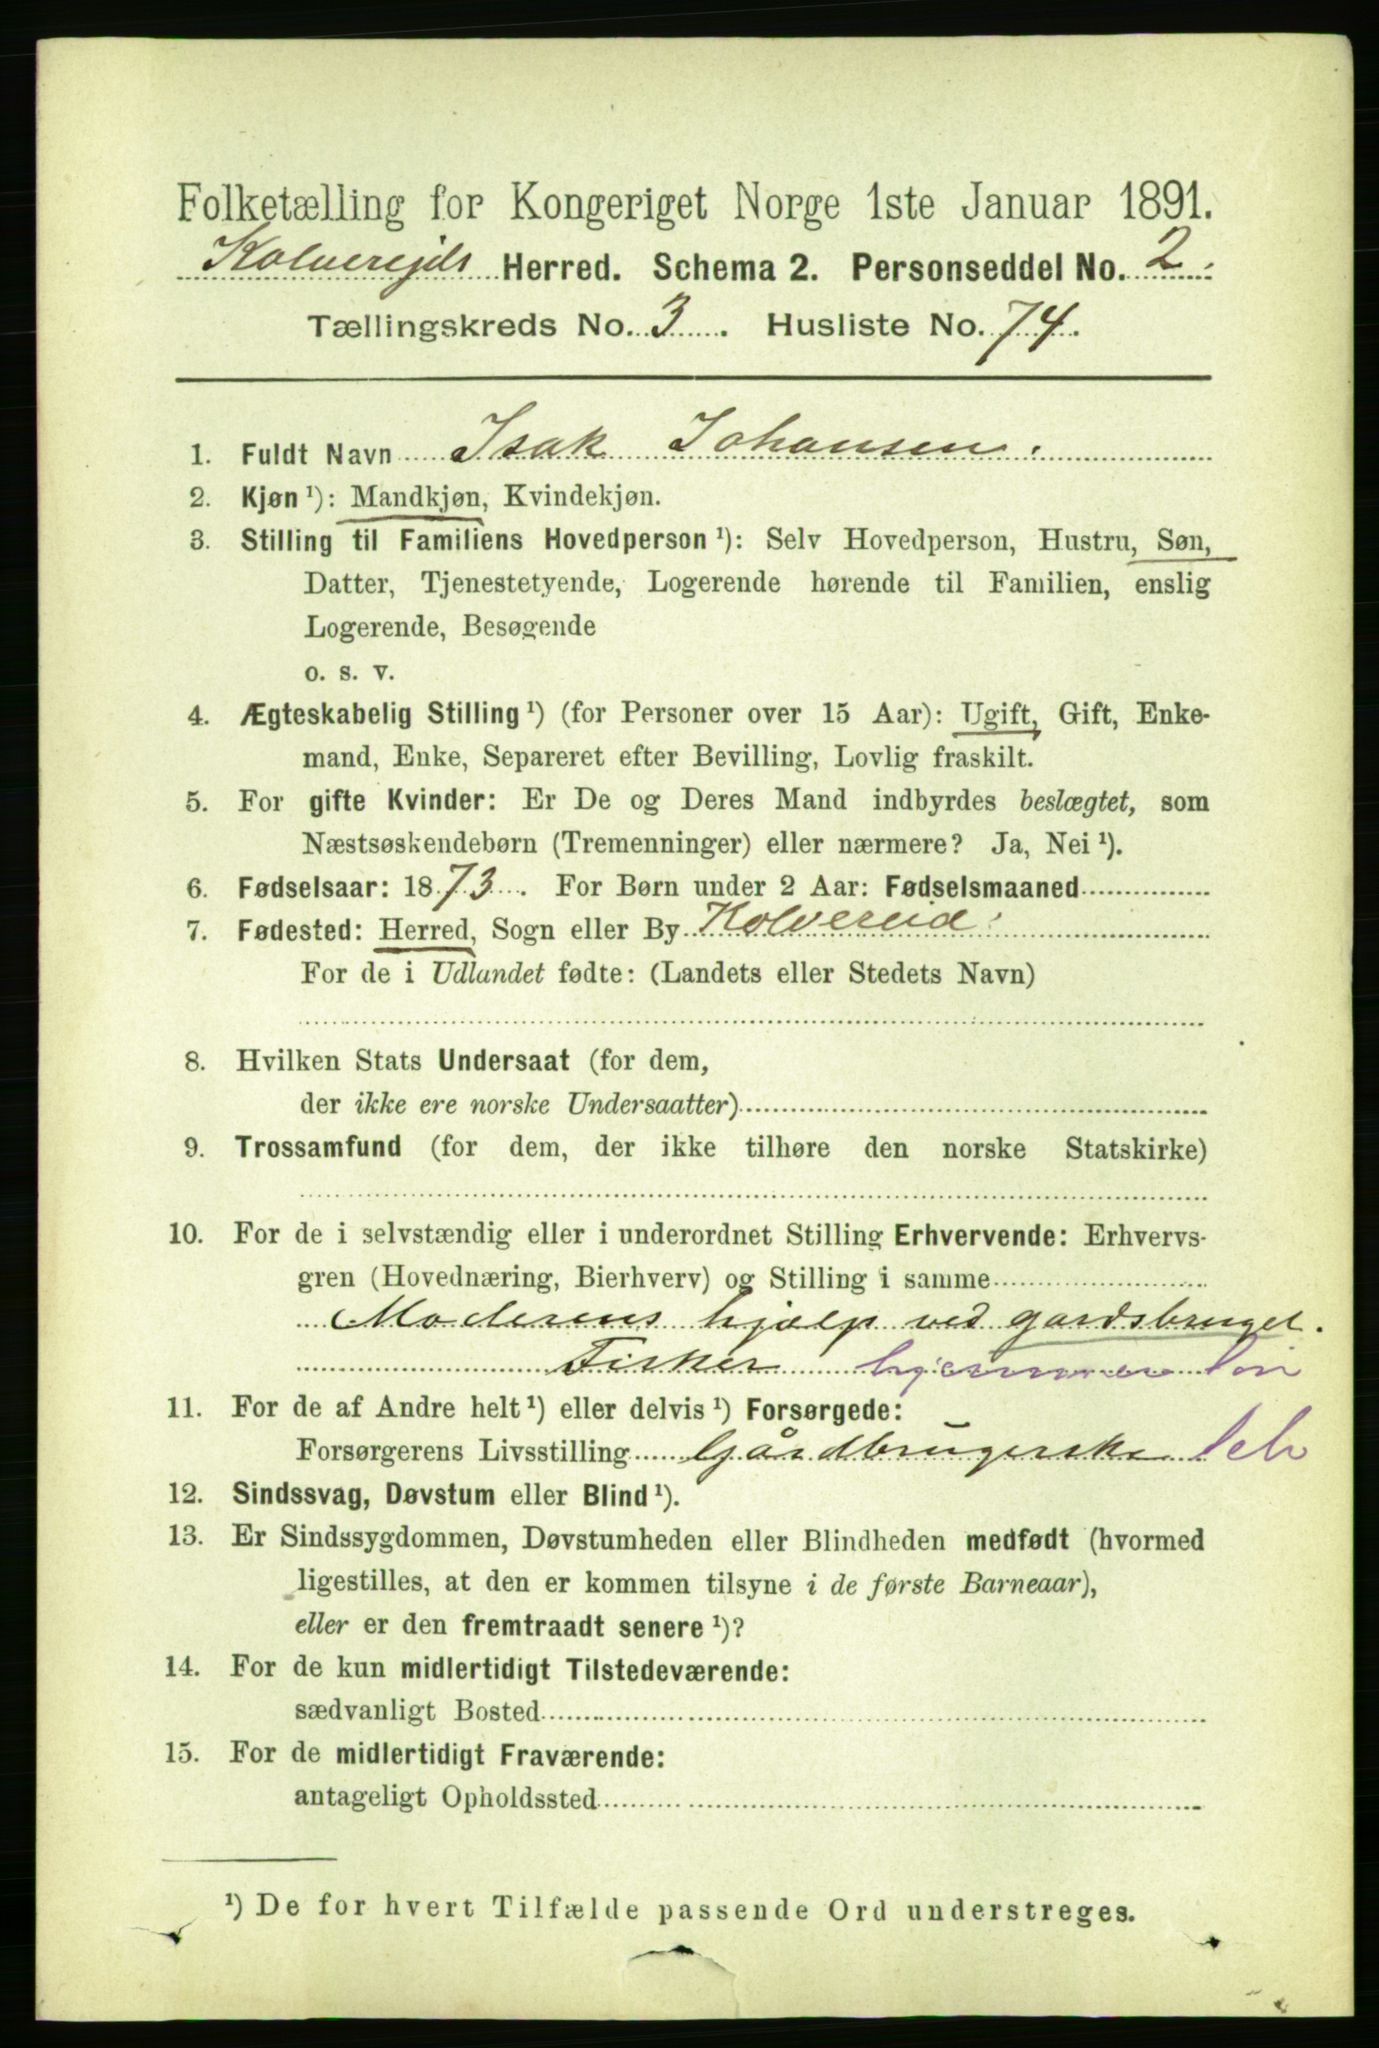 Folketælling for Kongeriget Norge 1ste Januar 1891.
Kolvereids Herred. Schema 2. Personseddel No. 2.
Tællingskreds No. 3. Husliste No. 74.
1. Fuldt Navn Isak Johansen.
2. Kjøn ¹): Mandkjøn, Kvindekjøn.
3. Stilling til Familiens Hovedperson ¹): Selv Hovedperson, Hustru, Søn,
Datter, Tjenestetyende, Logerende hørende til Familien, enslig
Logerende, Besøgende
o. s. v.
4. Ægteskabelig Stilling ¹) (for Personer over 15 Aar): Ugift, Gift, Enke-
mand, Enke, Separeret efter Bevilling, Lovlig fraskilt.
5. For gifte Kvinder: Er De og Deres Mand indbyrdes beslægtet, som
Næstsøskendebørn (Tremenninger) eller nærmere? Ja, Nei ¹).
6. Fødselsaar: 1873. For Børn under 2 Aar: Fødselsmaaned
7. Fødested: Herred, Sogn eller By Kolvereid.
For de i Udlandet fødte: (Landets eller Stedets Navn)
8. Hvilken Stats Undersaat (for dem,
der ikke ere norske Undersaatter)
9. Trossamfund (for dem, der ikke tilhøre den norske Statskirke)
10. For de i selvstændig eller i underordnet Stilling Erhvervende: Erhvervs-
gren (Hovednæring, Bierhverv) og Stilling i samme
Moderens hjælp ved gardsbruget.
Fisker
11. For de af Andre helt ¹) eller delvis ¹) Forsørgede:
Forsørgerens Livsstilling Gårdbrugerske
12. Sindssvag, Døvstum eller Blind ¹).
13. Er Sindssygdommen, Døvstumheden eller Blindheden medfødt (hvormed
ligestilles, at den er kommen tilsyne i de første Barneaar),
eller er den fremtraadt senere ¹)?
14. For de kun midlertidigt Tilstedeværende:
sædvanligt Bosted
15. For de midlertidigt Fraværende:
antageligt Opholdssted
¹) De for hvert Tilfælde passende Ord understreges.